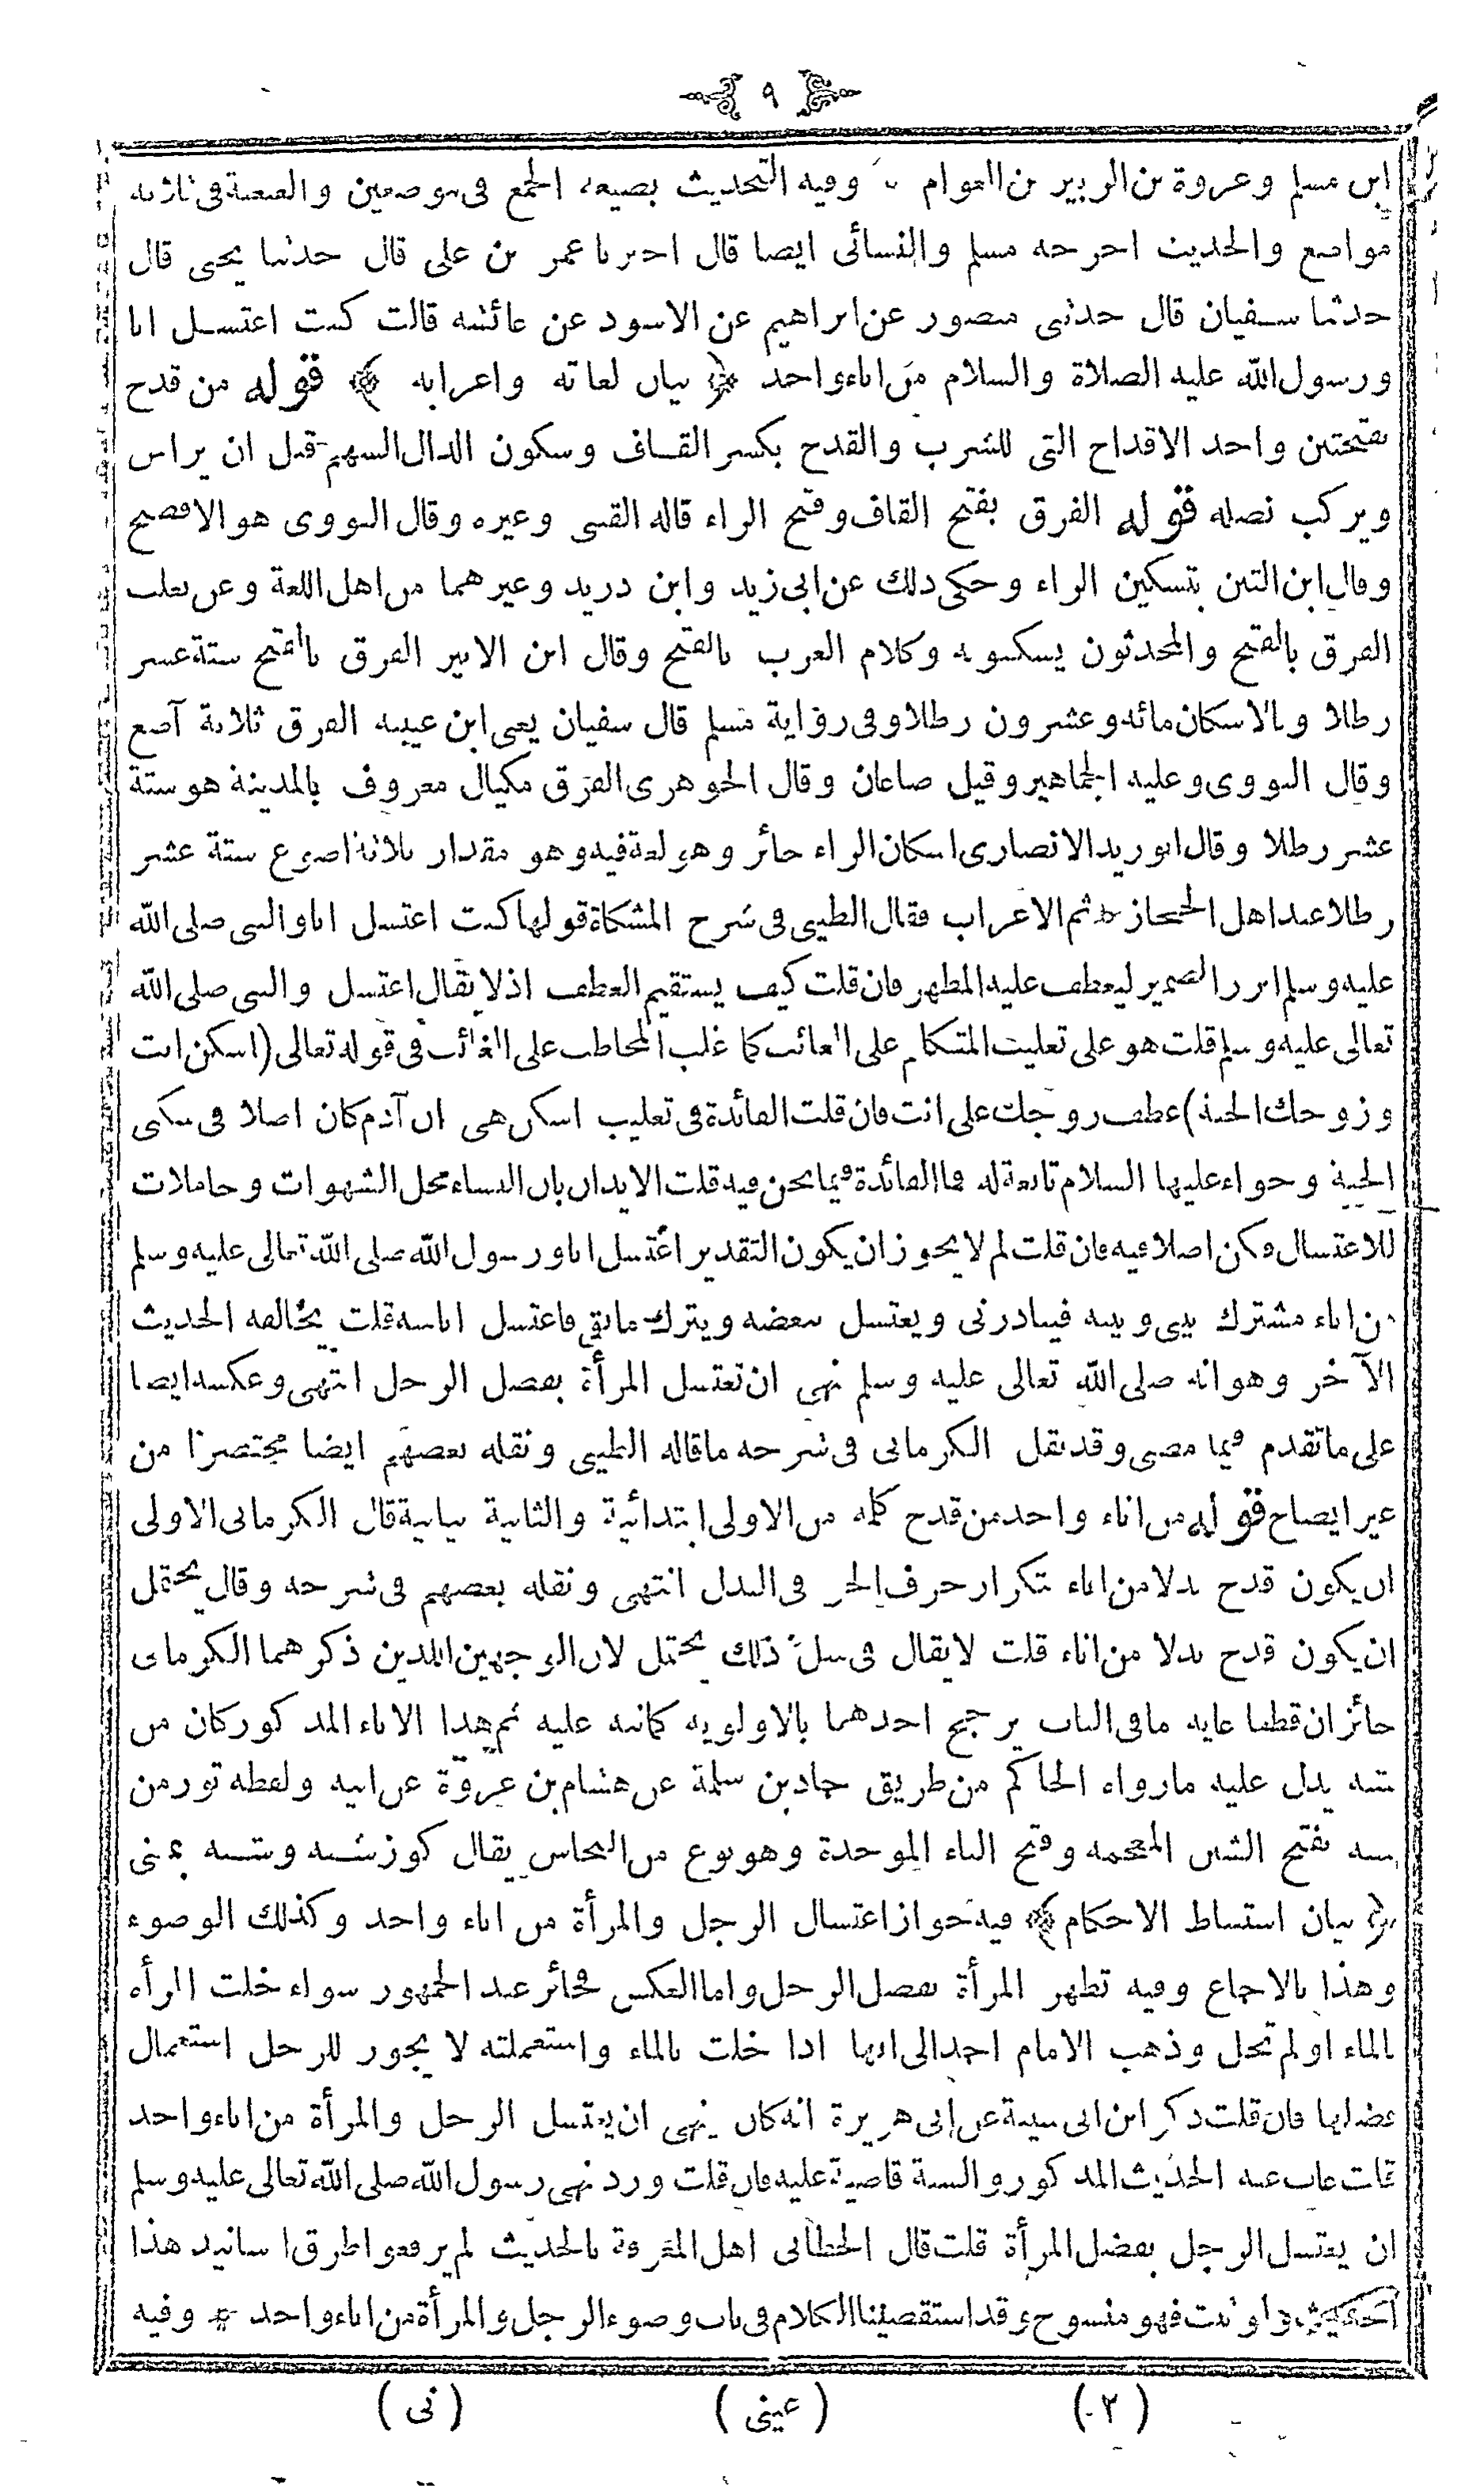 ٩
ابن مسلم وعروة بن الزبير بن العوام وفيه التحديث بصيغة الجمع فى موضعين والعنعنة فى ثلاثة
مواضع والحديث اخرجه مسلم والنسائى ايضا قال اخبرنا عمر بن على قال حدثنا يحيى قال
حدثنا سفيان قال حدثنى منصور عن ابراهيم عن الاسود عن عائشة قالت كنت اغتسل انا
ورسول الله عليه الصلاة والسلام من اناء واحد ﴿ بيان لغاته واعرابه ﴾ قوله من قدح
بفتحتين واحد الاقداح التى للشرب والقدح بكسر القاف وسكون الدال السهم قبل ان يراس
ويركب نصله قوله الفرق بفتح القاف وفتح الراء قاله القتبى وغيره وقال النووى هو الافصح
وقال ابن التين بتسكين الراء وحكى ذلك عن ابى زيد وابن دريد وغيرهما من اهل اللغة وعن ثعلب
الفرق بالفتح والمحدثون يسكنونه وكلام العرب بالفتح وقال ابن الاثير الفرق بالفتح ستة عشر
رطلا وبالاسكان مائه وعشرون رطلا وفى رواية مسلم قال سفيان يعنى ابن عيينه الفرق ثلاثة آصع
وقال النووى وعليه الجماهير وقيل صاعان وقال الجوهرى الفرق مكيال معروف بالمدينة هو ستة
عشر رطلا وقال ابو زيد الانصارى اسكان الراء جائز وهو لغة فيه وهو مقدار ثلاثة اصوع ستة عشر
رطلا عند اهل الحجاز ثم الاعراب فقال الطيبى فى شرح المشكاة قولها كنت اغتسل انا والنبى صلى الله
عليه وسلم ابرز الضمير ليعطف عليه المظهر فان قلت كيف يستقيم العطف اذ لا يقال اغتسل والنبى صلى الله
تعالى عليه وسلم قلت هو على تغليب المتكلم على الغائب كما غلب المخاطب على الغائب فى قوله تعالى (اسكن انت
وزوجك الجنة) عطف زوجك على انت فان قلت الفائدة فى تغليب اسكن هى ان آدم كان اصلا فى سكنى
الجنة وحواء عليها السلام تابعة له فما الفائدة فيما نحن فيه قلت الايذان بان النساء محل الشهوات وحاملات
للاغتسال فكن اصلا فيه فان قلت لم لا يجوز ان يكون التقدير اغتسل انا ورسول الله صلى الله تعالى عليه وسلم
من اناء مشترك بينى وبينه فيبادرنى ويغتسل ببعضه ويترك مابقى فاغتسل انا منه قلت يخالفه الحديث
الآخر وهو انه صلى الله تعالى عليه وسلم نهى ان تغتسل المرأة بفضل الرجل انتهى وعكسه ايضا
على ماتقدم فيما مضى وقد نقل الكرمانى فى شرحه ماقاله الطيبى ونقله بعضهم ايضا مختصرا من
غير ايضاح قوله من اناء واحد من قدح كلمه من الاولى ابتدائية والثانية بيانية قال الكرمانى الاولى
ان يكون قدح بدلا من اناء بتكرار حرف الجر فى البدل انتهى ونقله بعضهم فى شرحه وقال يحتمل
ان يكون قدح بدلا من اناء قلت لا يقال فى مثل ذلك يحتمل لان الوجهين اللذين ذكرهما الكرمانى
جائزان قطعا غايه مافى الباب يرجح احدهما بالاولويه كمانبه عليه ثم هذا الاناء المذكور كان من
شبه يدل عليه مارواه الحاكم من طريق حماد بن سلمة عن هشام بن عروة عن ابيه ولفظه تور من
شبه بفتح الشين المعجمه وفتح الباء الموحدة وهو نوع من النحاس يقال كوز شبه وشبه بمعنى
﴿ بيان استنباط الاحكام ﴾ فيه جواز اغتسال الرجل والمرأة من اناء واحد وكذلك الوضوء
وهذا بالاجماع وفيه تطهر المرأة بفضل الرجل واما العكس فجائز عند الجمهور سواء خلت المرأه
بالماء او لم تخل وذهب الامام احمد الى انها اذا خلت بالماء واستعملته لا يجوز للرجل استعمال
فضلها فان قلت ذكر ابن ابى شيبة عن ابى هريرة انه كان ينهى ان يغتسل الرجل والمرأة من اناء واحد
قلت غاب عنه الحديث المذكور والسنة قاضية عليه فان قلت ورد نهى رسول الله صلى الله تعالى عليه وسلم
ان يغتسل الرجل بفضل المرأة قلت قال الخطابى اهل المعرفة بالحديث لم يرفعوا طرق اسانيد هذا
الحديث ولو ثبت فهو منسوخ وقد استقصينا الكلام فى باب وضوء الرجل والمرأة من اناء واحد وفيه
(٢) (عينى) (نى)